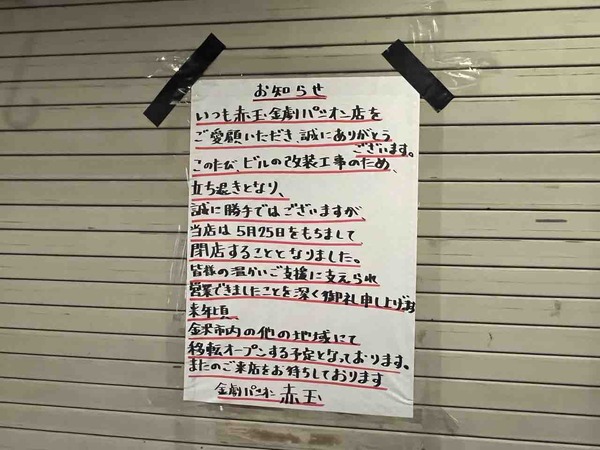 お知らせ
いつも赤玉金劇パシオン店を
ご愛顧いただき、誠にありがとう
ございます。
このたび、ビルの改装工事のため、
立ち退きとなり、
誠に勝手ではございますが、
当店は5月25日をもちまして
閉店することとなりました。
皆様の温かいご支援に支えられ
営業できましたことを深く御礼申し上げます
来年頃
金沢市内の他の地域にて
移転オープンする予定となっております。
またのご来店をお待ちしております
金劇パシオン 赤玉